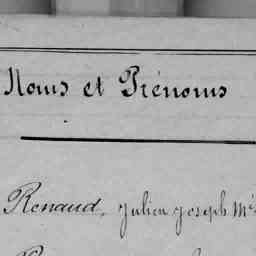 Noms et Prénoms
Renaud, Julien Joseph